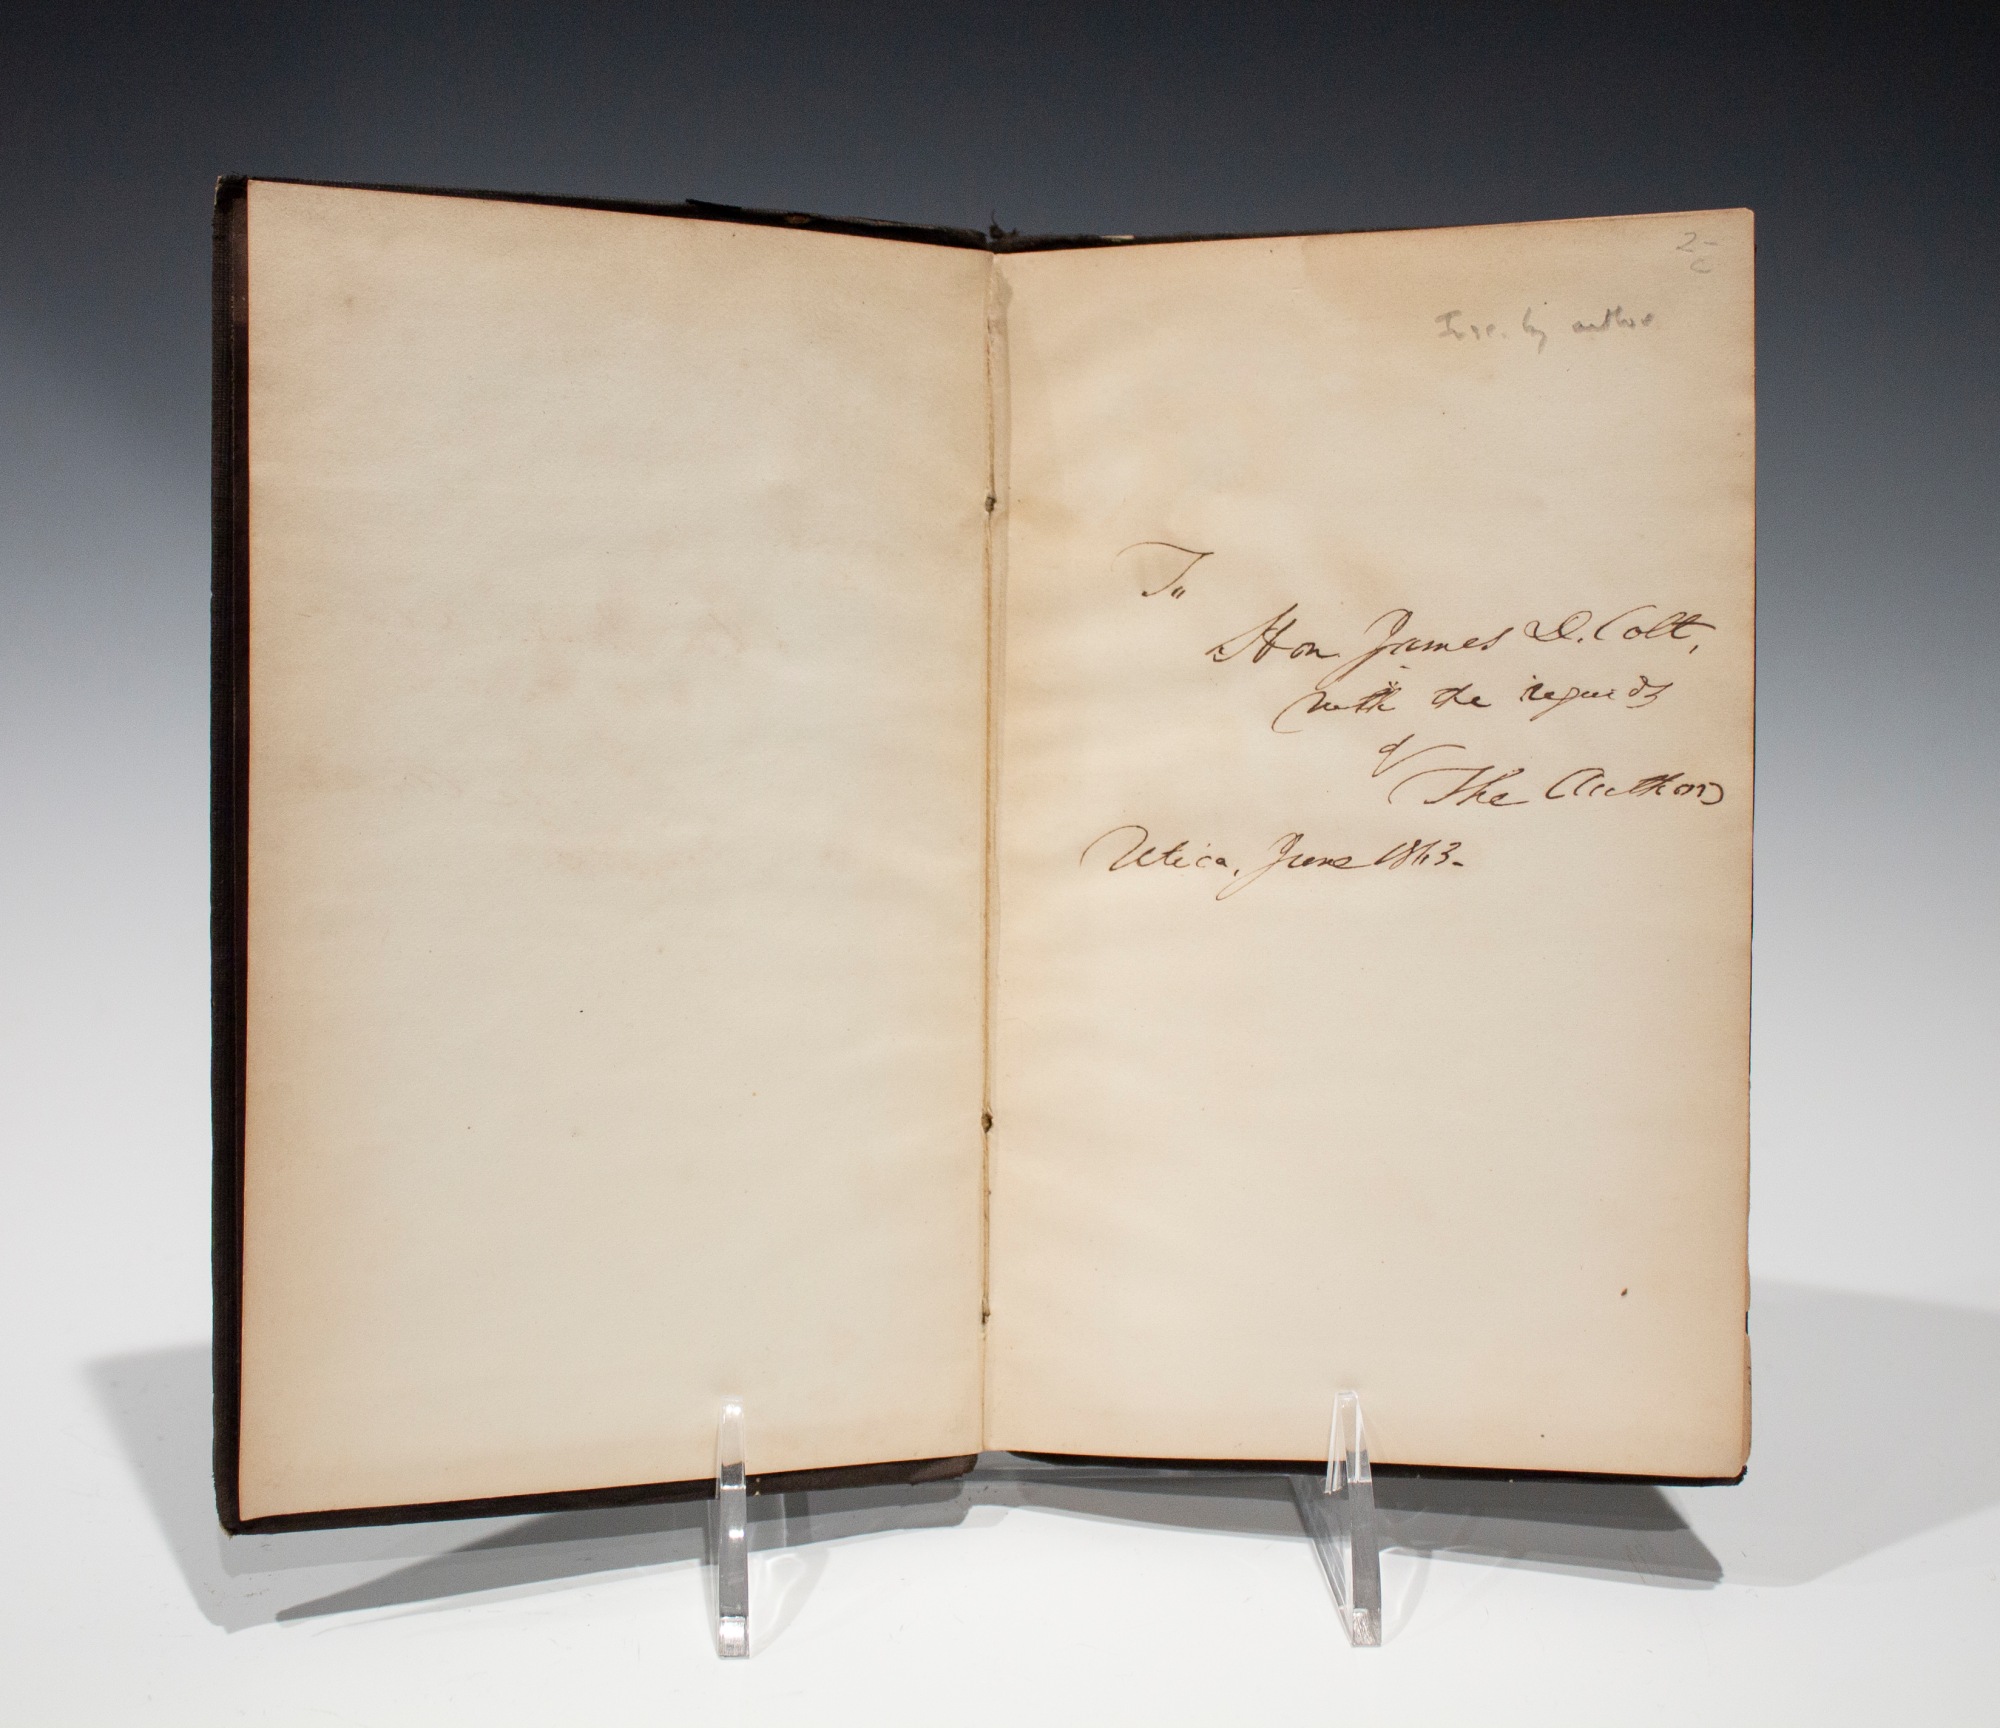 2-
c
Insc. by author
To
Hon James D. Colt,
with the regards
of
The Author
Utica, June 1863.